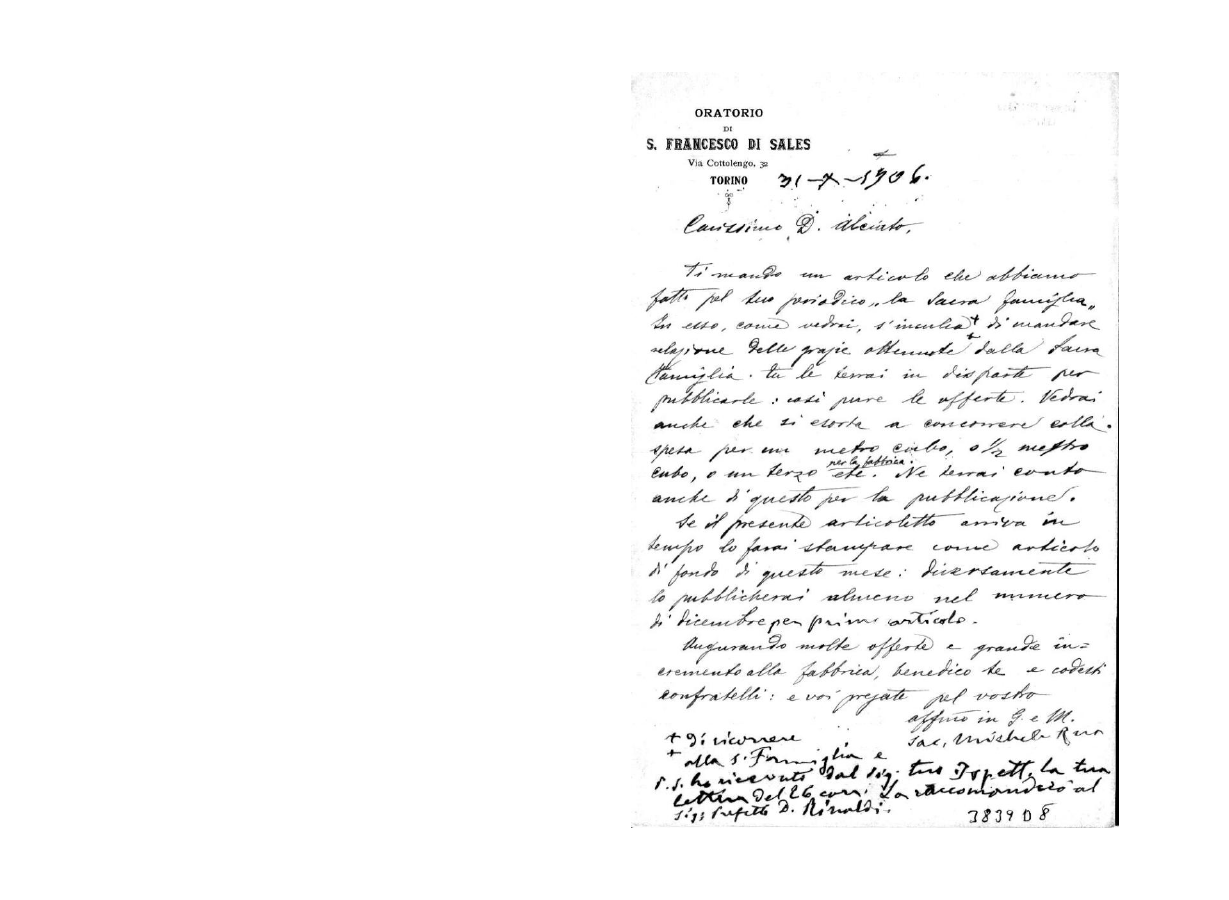 ORATORIO
DI
S. FRANCESCO DI SALES
Via Cottolengo, 32
TORINO
31-7-1906.
Carissimo D. Alciato,
Ti mando un articolo che abbiamo
fatto pel tuo periodico „la Sacra famiglia„
In esso, come vedrai, s'inculca + di mandare
relazione delle grazie ottenute + dalla Sacra
famiglia. tu le terrai in disparte per
pubblicarle: così pure le offerte. Vedrai
anche che si esorta a concorrere colla
spesa per un metro cubo, o 1/2 metro
per la fabbrica.
cubo, o un terzo etc. Ne terrai conto
anche di questo per la pubblicazione.
Se il presente articoletto arriva in
tempo lo farai stampare come articolo
di fondo di questo mese: diversamente
lo pubblicherai almeno nel numero
di dicembre per primo articolo.
Augurando molte offerte e grande in=
cremento alla fabbrica, benedico te e codesti
confratelli: e voi pregate pel vostro
affmo in G. e M.
Sac. Michele Rua
+ di ricorrere
+ alla S. Famiglia e
P.S. ho ricevuto dal Sig. tuo Ispett. la tua
lettera del 26 corr. La raccomanderò al
Sig. Prefetto D. Rinaldi.
3839 D 8